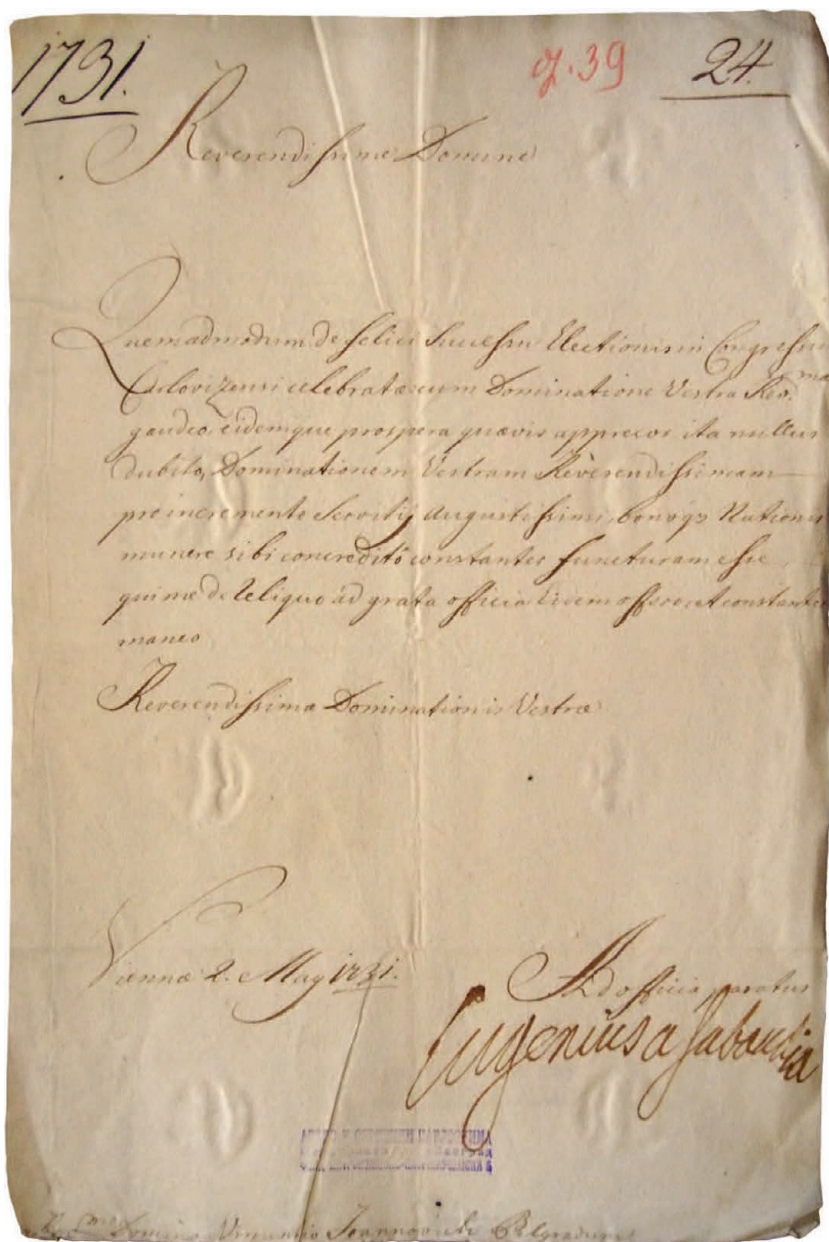 1731.
24.
Reverendissime Domine
Quemadmodum de felici Successu Electionis in Congressu
Carlovizensi celebratæ cum Dominatione Vestra Rev.ma
gaudeo, eidemque prospera quævis apprecor ita nullus
dubito, Dominationem Vestram Reverendissimam
pro incremento Servitij Augustissimi, bonoq3 Nationis
munere sibi concredito constanter functuram esse,
qui me de reliquo ad grata officia eidem offero et constanter
maneo
Reverendissimæ Dominationis Vestræ
Viennæ 2. May 1731.
Ad officia paratus
Eugenius a Sabaudia
Domino Vincentio Joannovich Belgradum